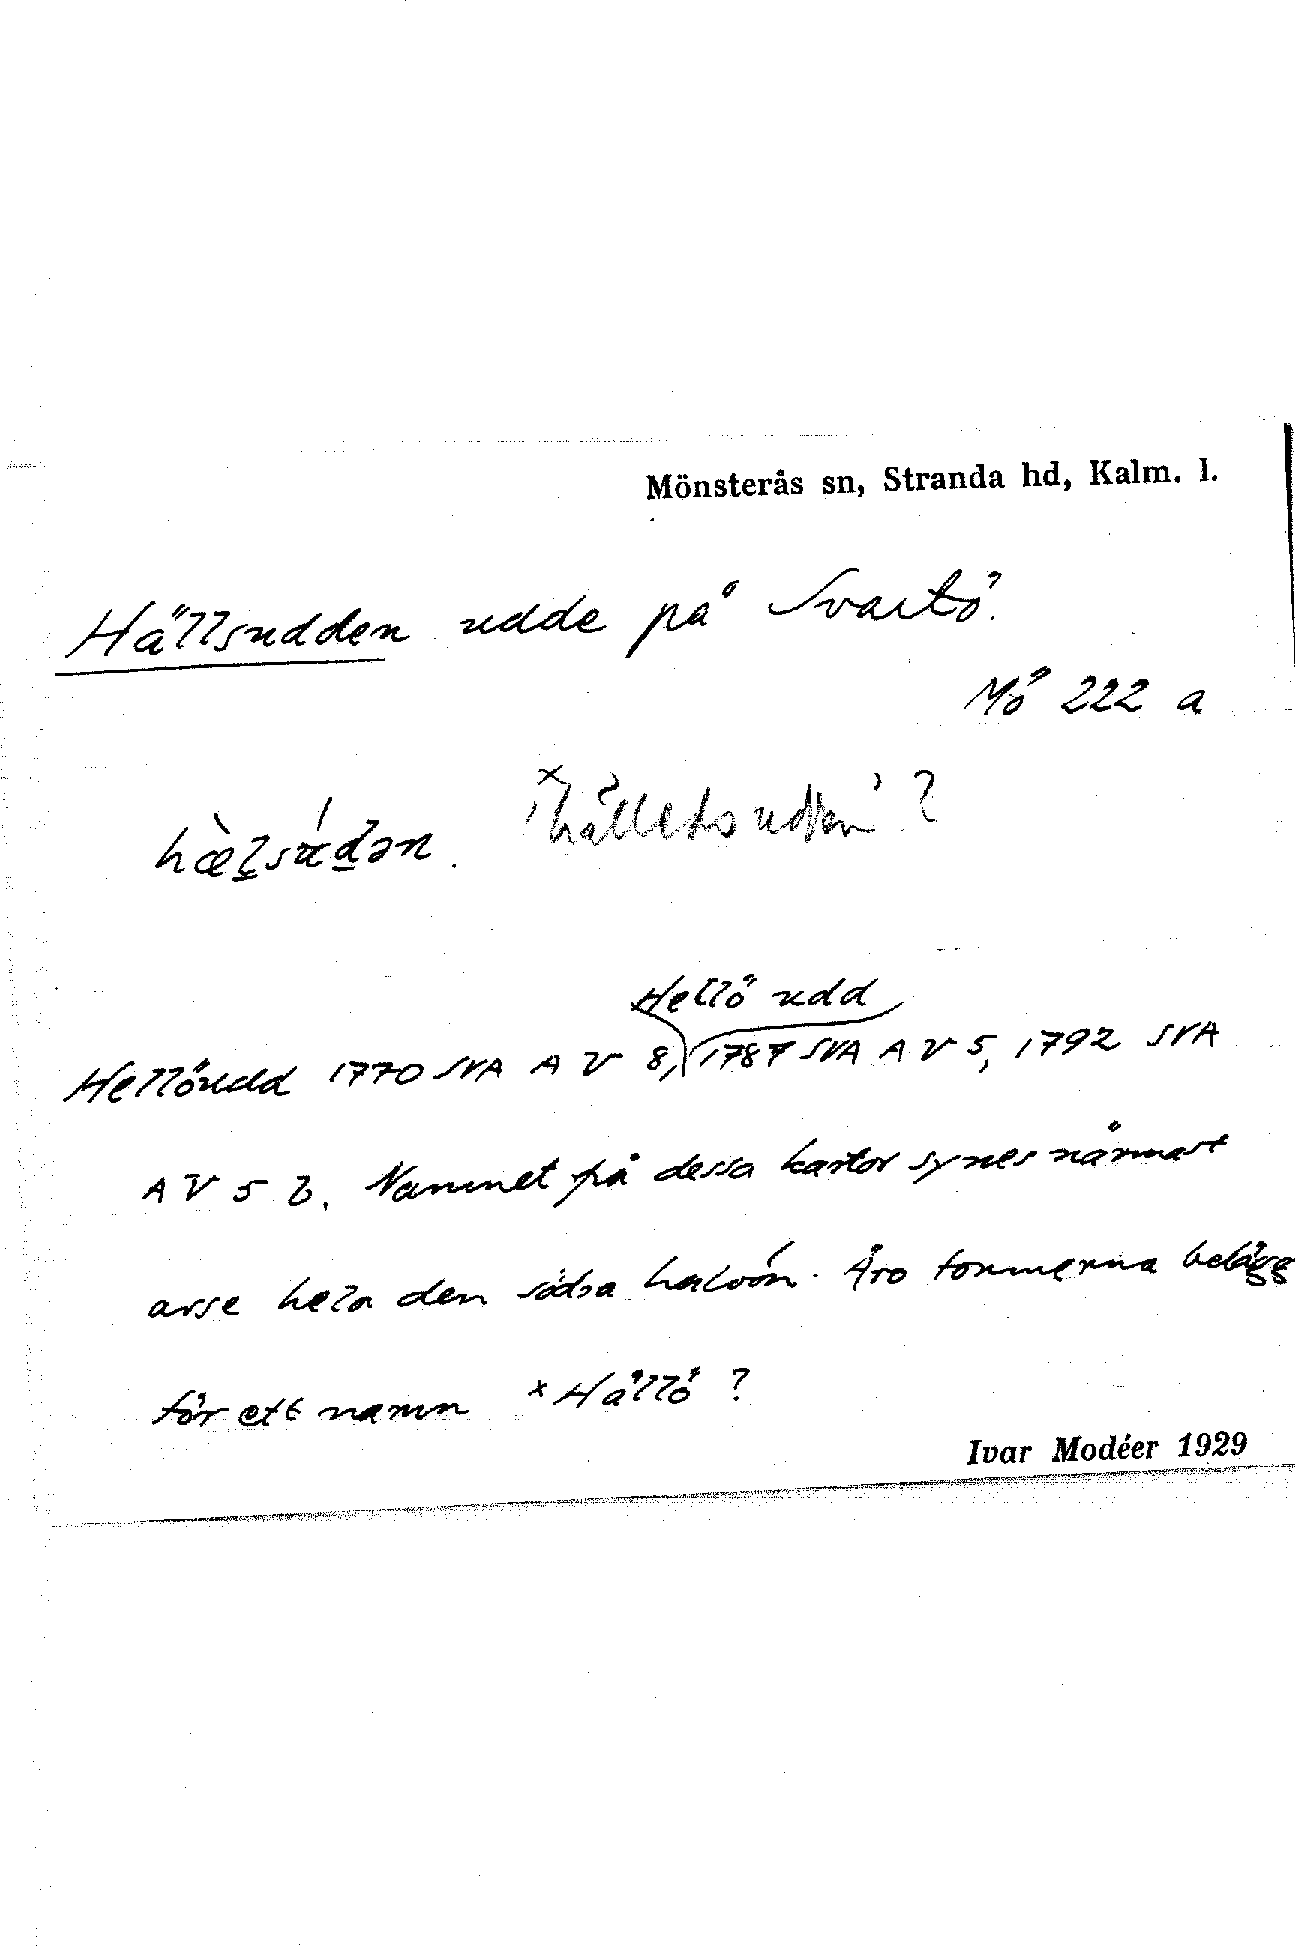 Mönsterås sn, Stranda hd, Kalm. l.
Hällsudden udde på Svartö.
Mö 222 a
hæ̀l̲súd̲ən. ˣ'hälletsudden'?
Hellö udd
Hellöudd 1770 SVA A V 8, 1787 SVA A V 5, 1792 SVA
A V 5 b. Namnet på dessa kartor synes närmast
avse hela den södra halvön. Äro formerna belägg
för ett namn ˣHällö?
Ivar Modéer 1929